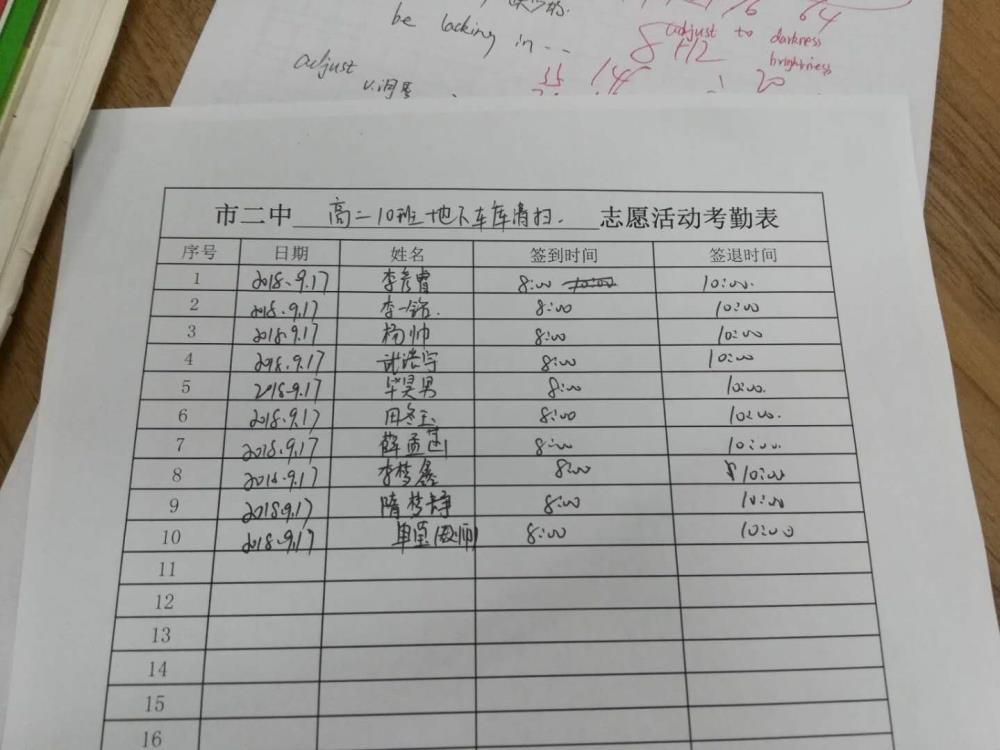 be lacking in ...
76 64
adjust to darkness
8 112
brightness
adjust
v.调整
35 145 20
市二中 高二10班地下车库清扫. 志愿活动考勤表
序号 日期 姓名 签到时间 签退时间
1 2018.9.17 李彦睿 8:00 10:00.
2 2018.9.17 李一铭. 8:00 10:00
3 2018.9.17 杨帅 8:00 10:00
4 2018.9.17 8:00 10:00
5 2018.9.17 毕昊男 8:00 10:00.
6 2018.9.17 田冬玉 8:00 10:00.
7 2018.9.17 薛孟 8:00 10:00.
8 2018.9.17 李梦鑫 8:00 10:00
9 2018.9.17 隋梦静 8:00 10:00
10 2018.9.17 单莹(教师) 8:00 10:00
11
12
13
14
15
16